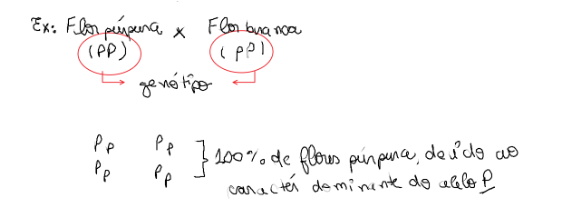 Ex: Flor púrpura x Flor branca
(PP) (pp)
genótipo
Pp Pp
Pp Pp } 100% de flores púrpura, devido ao
caractér dominante do alelo P